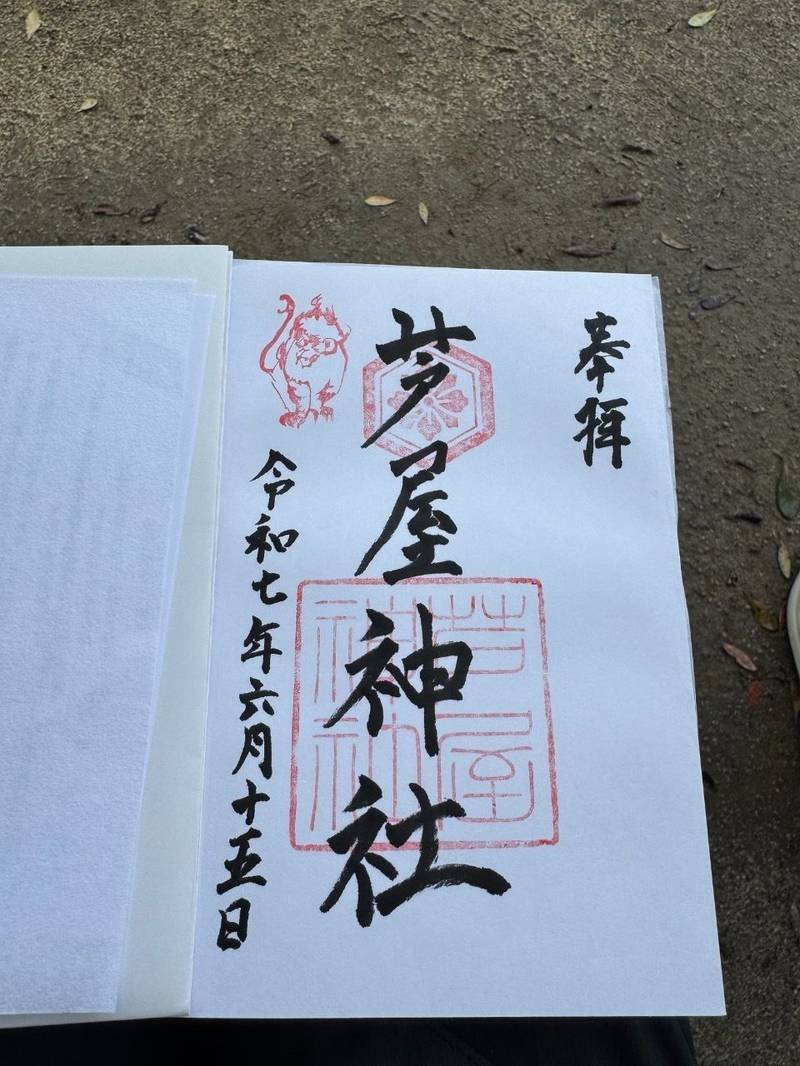 奉拝
芦屋神社
令和七年六月十五日
芦屋
神社